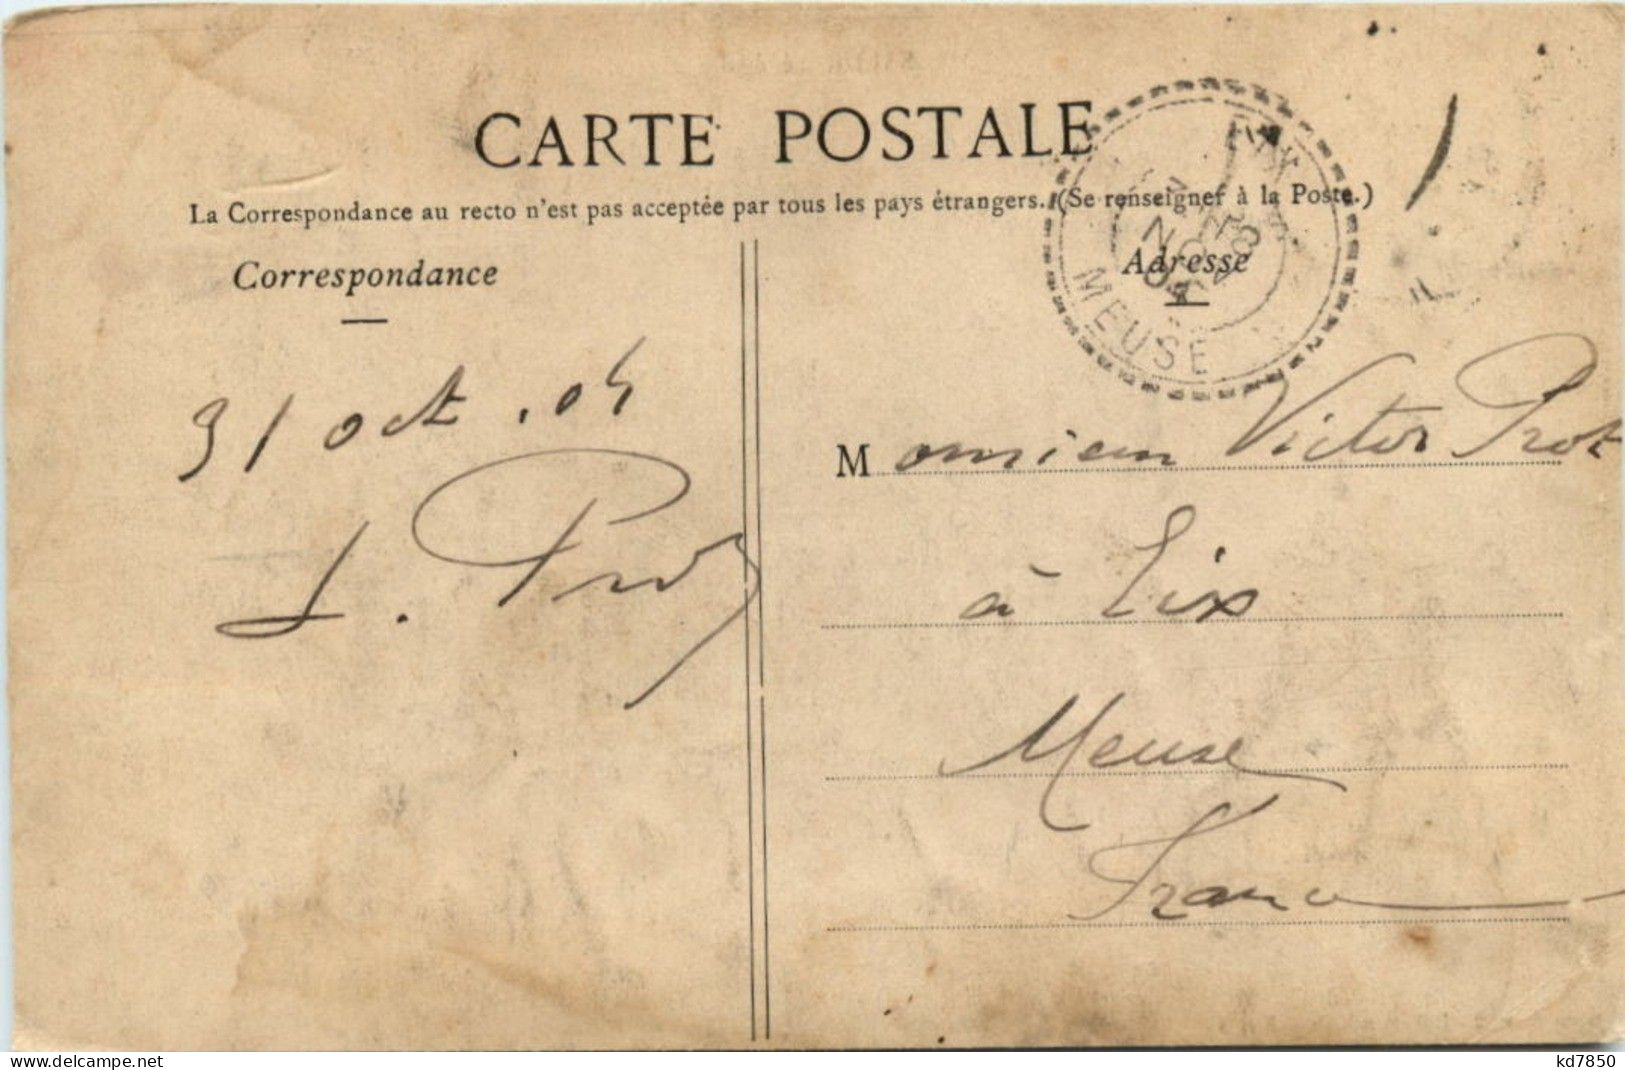 CARTE POSTALE
La Correspondance au recto n'est pas acceptée par tous les pays étrangers. (Se renseigner à la Poste.)
Correspondance
Adresse
MEUSE
31 oct. 04
Monsieur Victor Prot
à Lix
Meuse
France
www.delcampe.net
kd7850